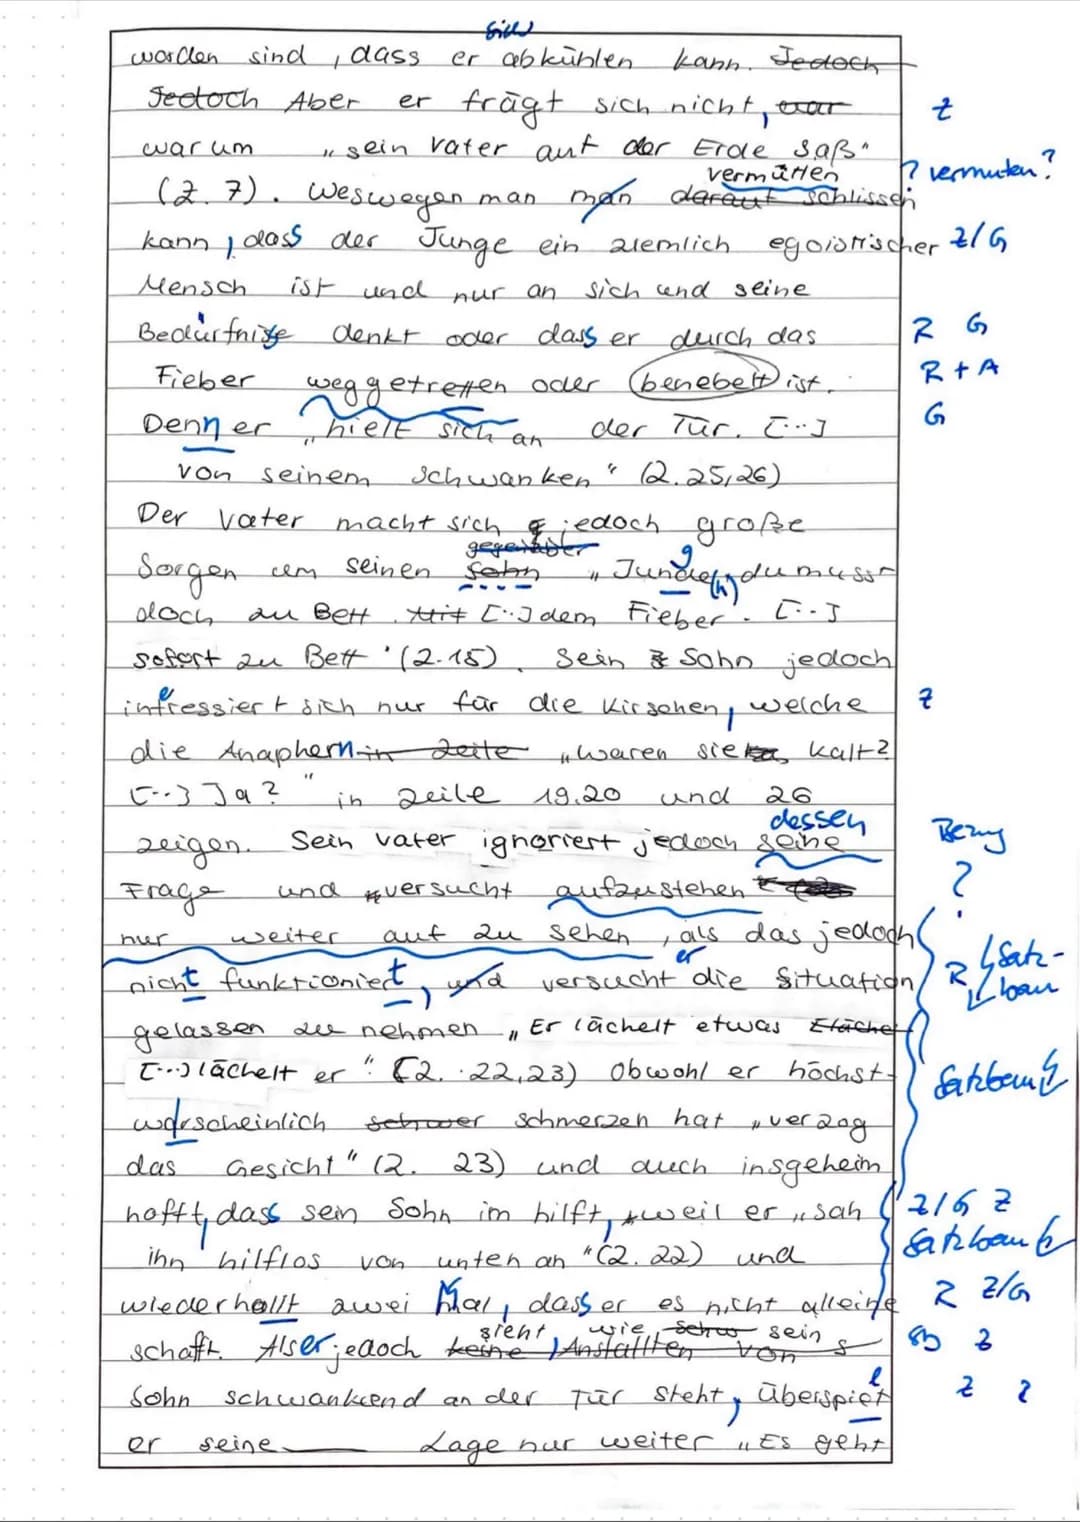 sich
worden sind, dass er abkühlen kann. Jedoch
Jedoch Aber er frägt sich nicht, war z
warum „sein Vater auf der Erde saß"
vermütten ? vermuten?
(Z. 7). Weswegen man man darauf schlissen
kann, dass der Junge ein ziemlich egoistischer Z/G
Mensch ist und nur an sich und seine
Bedürfniße denkt oder dass er durch das R G
Fieber weggetretten oder benebelt ist. R + A
Denn er „hielt sich an der Tür. [...] G
von seinem schwanken" (Z. 25,26)
Der Vater macht sich jedoch große
gegenüber g
Sorgen um seinen Sohn „Junde(n) du musst
doch zu Bett. Mit [..] dem Fieber. [...]
sofort zu Bett" (Z. 15). Sein Sohn jedoch
e
intressiert sich nur für die Kirschen, welche z
die Anaphern in Zeile „waren sie kalt?
[...] Ja?" in Zeile 19,20 und 26
dessen
zeigen. Sein Vater ignoriert jedoch seine Bezug
Frage und versucht aufzustehen ?
nur weiter auf zu sehen, als das jedoch
er Satz-
nicht funktioniert, und versucht die Situation R bau
gelassen zu nehmen „Er lächelt etwas
[...] lächelt er" (Z. 22,23) Obwohl er höchst- Satzbau
warscheinlich schwer schmerzen hat „verzog
das Gesicht" (Z. 23) und auch insgeheim
hofft, dass sein Sohn im hilft, weil er „sah Z/G Z
ihn hilflos von unten an" (Z. 22) und Satzbau
wiederhollt zwei Mal, dass er es nicht alleine R Z/G
sieht, wie schw sein
schafft. Als er jedoch keine Anstallten von s Sb Z
l
Sohn schwankend an der Tür steht, überspiet Z ?
er seine Lage nur weiter „Es geht